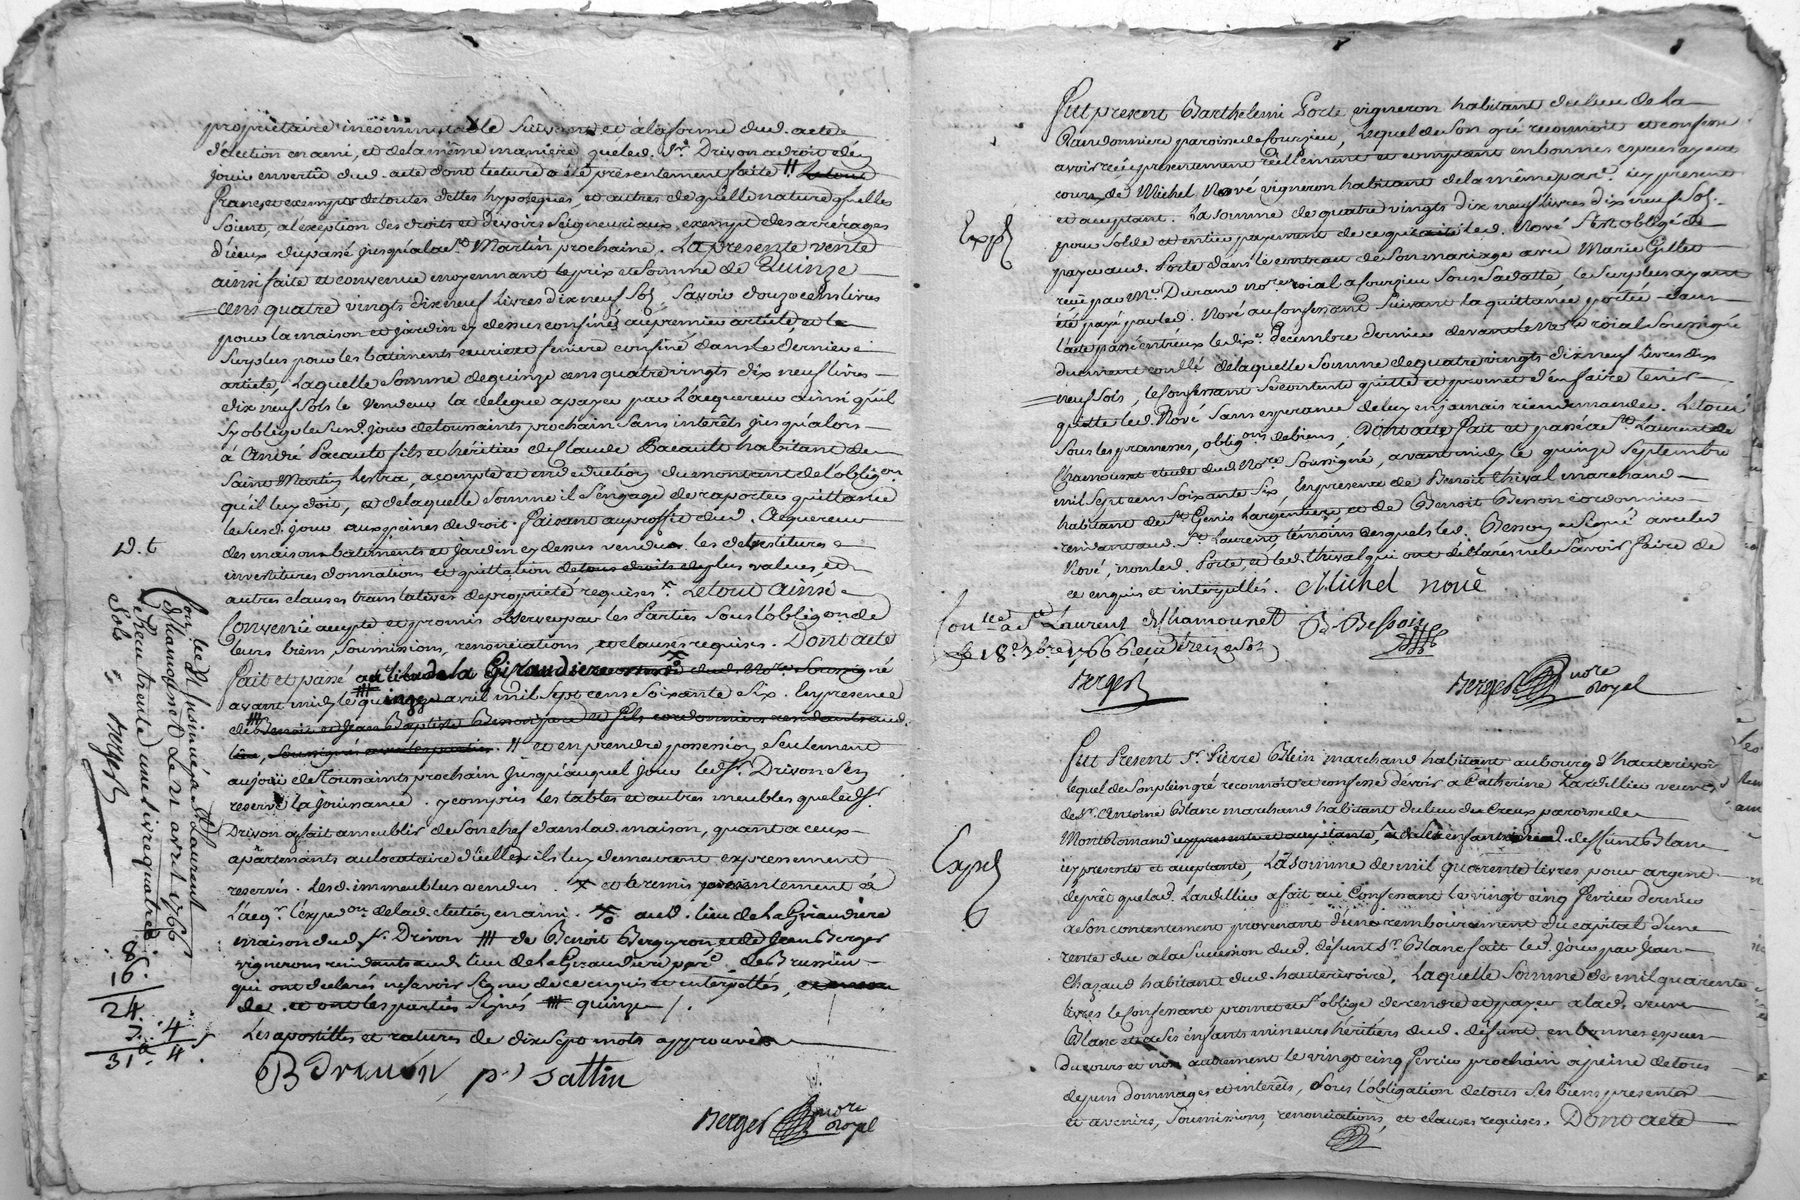 propriétaire incommutable suivant et a la forme dud. acte
d'élection en ami, et de la même maniere que led. Sr. Drivon a droit d'en
jouir en vertû dud. acte dont lecture a été presentement faite # Le tout
franc et exempt de toutes dettes hypoteques et autres de quelle nature qu'elles
soient, a l'exéption des droits et devoirs seigneuriaux, exempt des arrérages
d'iceux du passé jusqu'a la St. Martin prochaine. La presente vente
ainsi faite et convenue moyennant le prix et somme de Quinze
cens quatre vingts dix neuf livres dix neuf sols. Savoir douze cens livres
pour la maison et jardin cy dessus confinés au premier article et le
surplus pour les bâtiments confiné dans le dernier
article, Laquelle somme de quinze cens quatre vingts dix neuf livres
dix neuf sols le vendeur la delegue a payer par l'acquereur ainsi qu'il
s'y oblige le susd. jour de toussaints prochain sans interêts jusqu'alors
à André Pacault fils et héritier de Claude Pacault habitant de
Saint Martin Lestra, acompte et en deduction du montant de l'oblig.on
qu'il luy doit, et de laquelle somme il s'engage de raporter quittance
le susd. jour aux peines de droit. faisant au proffit dud. acquereur
des maison batiments et jardin cy dessus vendus les devestitures
investitures donnations et quittation de tous droits de plus values, et
autres clauses translatives de proprieté requises. Le tout ainsi
Convenu accepté et promis observer par les Parties sous l'oblig.on de
leurs biens, soumission, renonciations, et clauses requises. Dont acte
fait et passé au lieu de la Giraudiere dud. No.re soussigné
avant midy le quinze avril mil sept cens soixante six. En presence
de Benoit et Jean Baptiste Besson pere et fils cordonniers residants aud.
lieu, soussignés avec les parties. # et en prendre possession seulement
au jour de Toussaints prochain jusqu'auquel jour led. Sr. Drivon s'en
reserve la jouissance. y compris les tables et autres meubles que led. Sr.
Drivon a fait ameublir de son chef dans lad. maison, quant a ceux
apartenants au locataire d'icelle ils luy demeurent expressement
reservés. Lesd. immeubles vendus. et a remis presentement a
l'acq.r l'exp.on de lad. election en ami. aud. lieu de la Giraudiere
maison dud. Sr. Drivon de Benoit Bergeron et de Jean Berger
vignerons residants aud. lieu de la Giraudiere par.e de Brussieu
qui ont declarés ne savoir signer de ce enquis et interpellés,
de. et ont les parties signés quinze /.
Les apostilles et ratures de dix sept mots approuvés
B Drivon p.r Sattin
Berger no.re Royal
D. t
Con.lé et Insinué a St Laurent
de Chamousset le 21 avril 1766
Reçu trente une livre quatre
Sols
Berger
8.
16.
24.
7. 4
31. 4
Fut present Barthelemi Porte vigneron habitant du lieu de la
Randonniere paroisse de Courzieu, Lequel de son gré reconnoit et confesse
avoir reçu presentement réellement et comptant en bonnes especes ayant
cours de Michel Nové vigneron habitant de la même par.e icy present
et acceptant. La somme de quatre vingts dix neuf livres dix neuf sols.
Exp.é
pour solde et entier payement de ce que led. Nové s'est obligé de
payer aud. Porte dans le contrat de son mariage avec Marie Gillet
reçu par M.e Durand no.re roial a Courzieu sous sa datte, le surplus ayant
été payé par led. Nové au confessant suivant la quittance portée dans
l'acte passé entr'eux le dix.e Decembre dernier devant le No.re roial soussigné
duement coullé de laquelle somme de quatre vingts dix neuf livres dix
neuf sols, le confessant se contente quitte et promet d'en faire tenir
quitte led. Nové sans esperance de luy en jamais rien demander. Le tout
sous les promesses, oblig.ons de biens, Dont acte fait et passé a St. Laurent de
Chamousset etude dud. No.re soussigné, avant midy le quinze Septembre
mil sept cens soixante six, En presence de Benoit Thival marchand
habitant de St. Genis Largentiere et de Benoit Besson cordonnier
residant aud. St. Laurent témoins desquels led. Besson a signé avec led
Nové, non led. Porte, et led. Thival qui ont déclarés ne le savoir faire de
ce enquis et interpellés. Michel nové
Con.lé a St Laurent de Chamousset B. Besson
le 18 7bre 1766 reçu treize sols
Berger
Berger no.re Royal
Fut Present Sr. Pierre Blein marchand habitant au bourg d'hauterivoire
lequel de son plein gré reconnoit et confesse devoir a Catherine Lardillier veuve
de Sr. Antoine Blanc marchand habitant du lieu du Creux paroisse de
Montromand icy presente et acceptante, et des enfants dud. deffunt Blanc
icy presente et acceptante, La somme de mil quarente livres pour argent
Exp.é
de prêt que lad. Lardillier a fait au Confessant le vingt cinq fevrier dernier
a son contentement provenant d'un remboursement du capital d'une
rente due a la succession dud. défunt Sr. Blanc fait led. jour par Jean
Chazaud habitant dud. hauterivoire, Laquelle somme de mil quarente
livres le Confessant promet et s'oblige de rendre et payer a lad. veuve
Blanc et a ses enfants mineurs héritiers dud. défunt en bonnes especes
du cours et non autrement le vingt cinq fevrier prochain a peine de tous
depens dommages et interêts, sous l'obligation de tous ses biens presents
et avenirs, soumissions, renonciations, et clauses requises. Dont acte